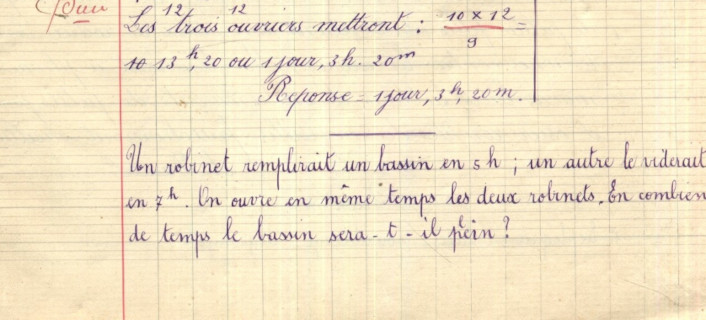 12 12
Les trois ouvriers mettront : 10 x 12 / 9 =
13 h, 20 ou 1 jour, 3 h. 20 m
Reponse = 1 jour, 3 h, 20 m.
Un robinet remplirait un bassin en 5 h ; un autre le viderait
en 7 h. On ouvre en même temps les deux robinets. En combien
de temps le bassin sera-t-il plein ?